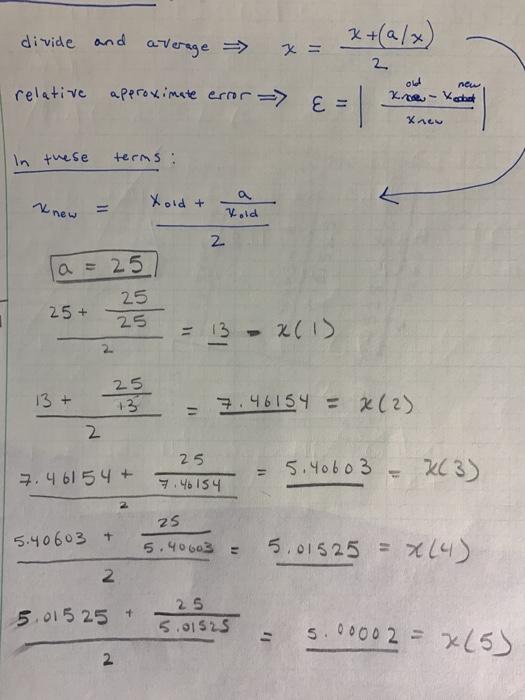 divide and average ⇒ x = (x+(a/x))/2
relative approximate error ⇒ ε = |(x old - x new)/x new|
In these terms:
x new = (x old + a/x old)/2
a = 25
(25 + 25/25)/2 = 13 - x(1)
(13 + 25/13)/2 = 7.46154 = x(2)
(7.46154 + 25/7.46154)/2 = 5.40603 = x(3)
(5.40603 + 25/5.40603)/2 = 5.01525 = x(4)
(5.01525 + 25/5.01525)/2 = 5.00002 = x(5)